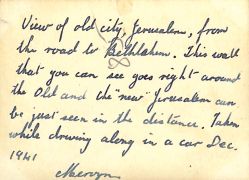 View of old city, Jerusalem, from
the road to Bethlehem. This wall
that you can see goes right around
the Old and the "new" Jerusalem can
be just seen in the distance. Taken
while driving along in a car Dec.
1941
Mervyn